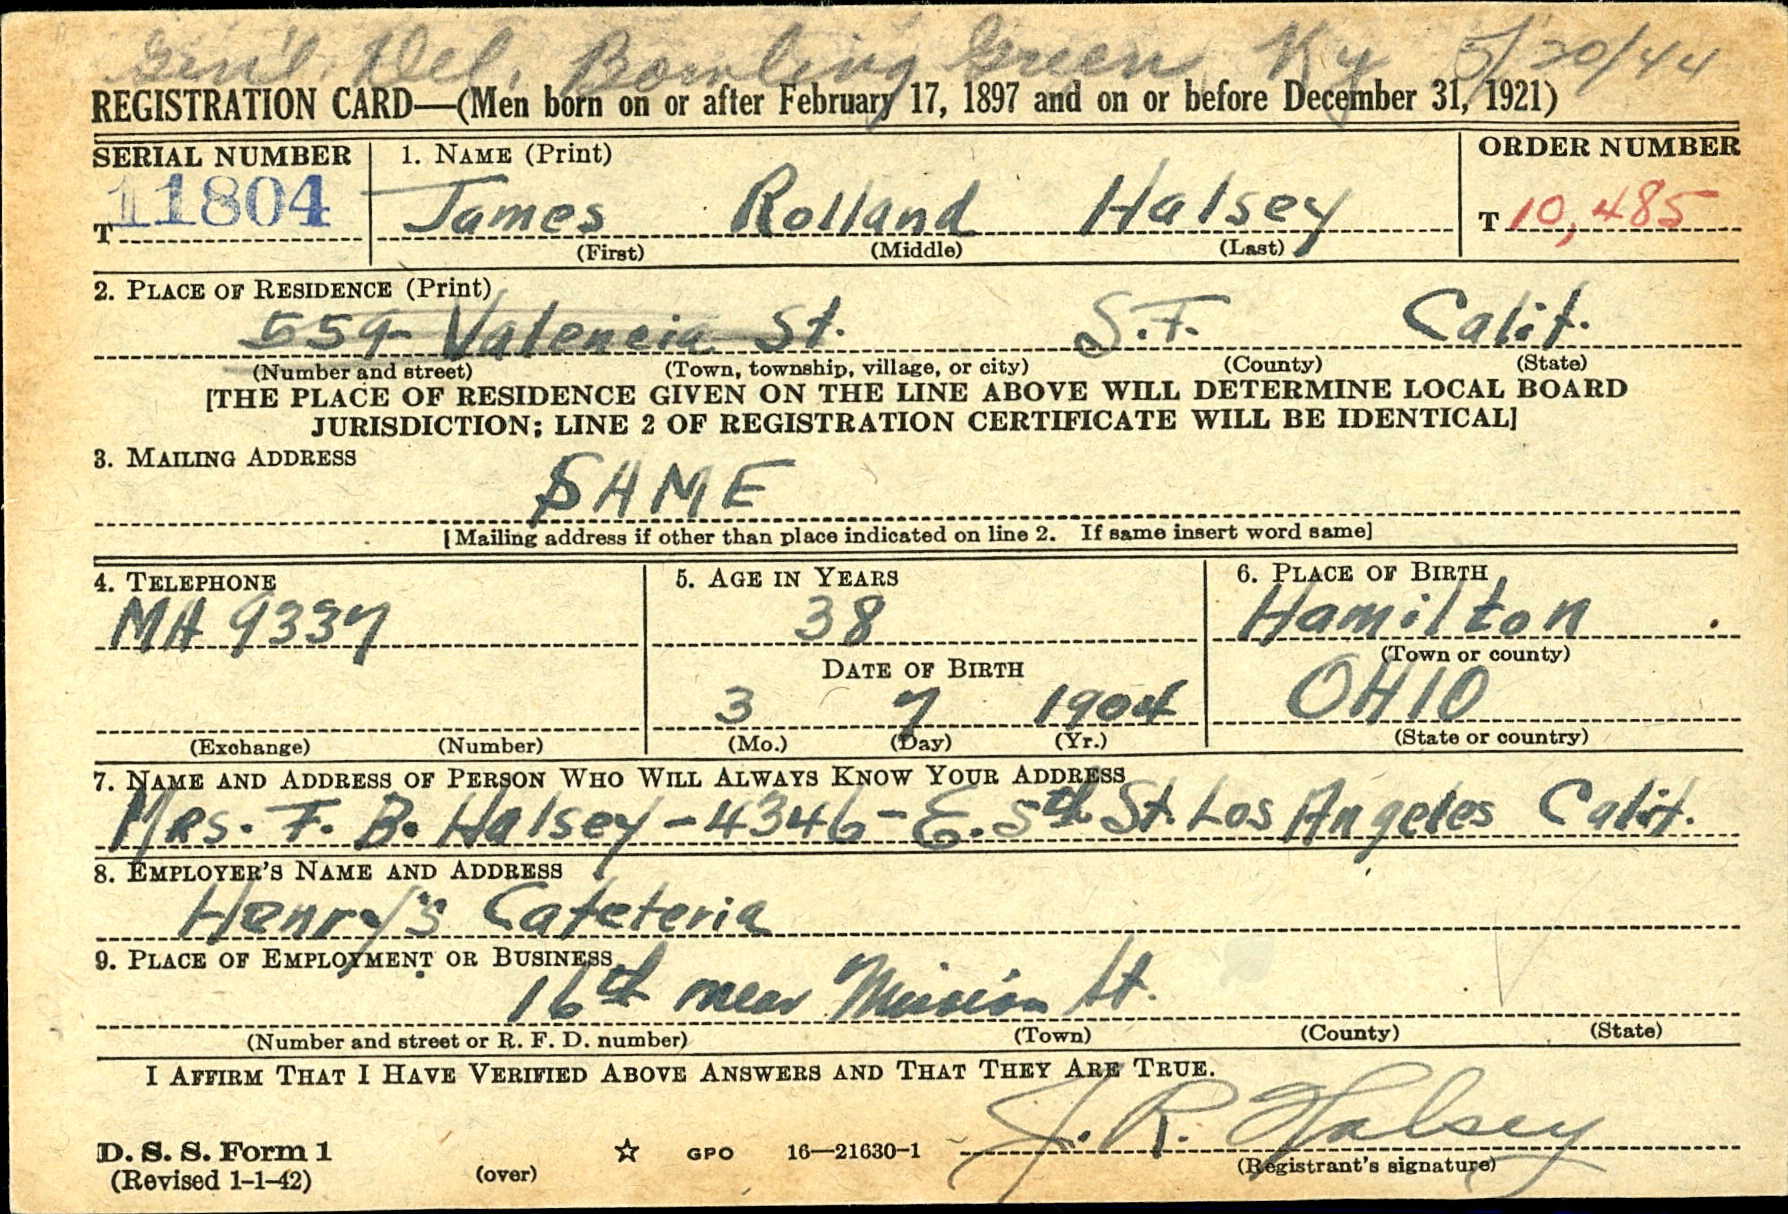 Gen'l. Del. Bowling Green Ky 5/20/44
REGISTRATION CARD—(Men born on or after February 17, 1897 and on or before December 31, 1921)
SERIAL NUMBER 1. NAME (Print) ORDER NUMBER
T 11804 James Rolland Halsey T 10,485
(First) (Middle) (Last)
2. PLACE OF RESIDENCE (Print)
559 Valencia St. S.F. Calif.
(Number and street) (Town, township, village, or city) (County) (State)
[THE PLACE OF RESIDENCE GIVEN ON THE LINE ABOVE WILL DETERMINE LOCAL BOARD
JURISDICTION; LINE 2 OF REGISTRATION CERTIFICATE WILL BE IDENTICAL]
3. MAILING ADDRESS
SAME
[Mailing address if other than place indicated on line 2. If same insert word same]
4. TELEPHONE 5. AGE IN YEARS 6. PLACE OF BIRTH
MA 9337 38 Hamilton
DATE OF BIRTH (Town or county)
3 7 1904 OHIO
(Exchange) (Number) (Mo.) (Day) (Yr.) (State or country)
7. NAME AND ADDRESS OF PERSON WHO WILL ALWAYS KNOW YOUR ADDRESS
Mrs. F. B. Halsey - 4346 - E. 5th St. Los Angeles Calif.
8. EMPLOYER'S NAME AND ADDRESS
Henry's Cafeteria
9. PLACE OF EMPLOYMENT OR BUSINESS
16th near Mission St.
(Number and street or R. F. D. number) (Town) (County) (State)
I AFFIRM THAT I HAVE VERIFIED ABOVE ANSWERS AND THAT THEY ARE TRUE.
J. R. Halsey
D. S. S. Form 1 ☆ GPO 16—21630-1
(Revised 1-1-42) (over) (Registrant's signature)